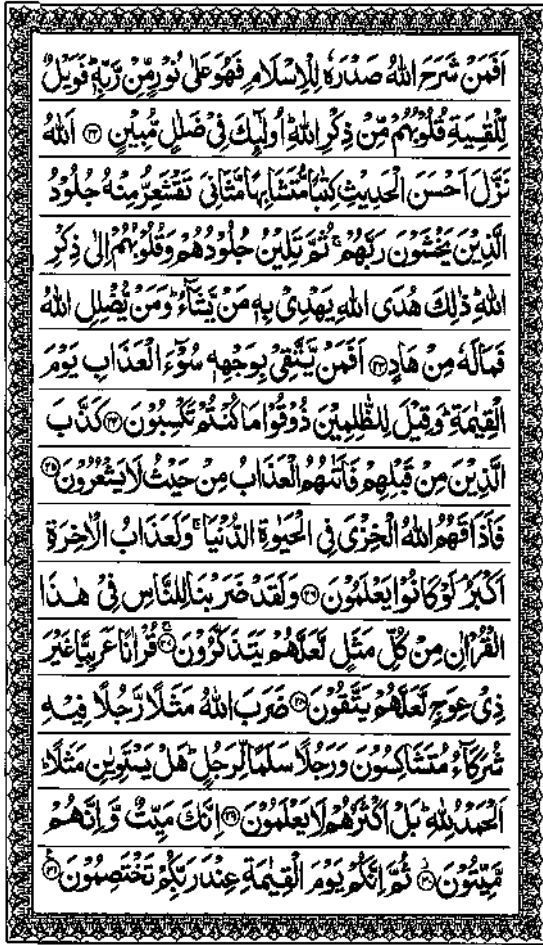 اَفَمَنْ شَرَحَ اللّٰهُ صَدْرَهٗ لِلْاِسْلَامِ فَهُوَ عَلٰى نُوْرٍ مِّنْ رَّبِّهٖؕ فَوَيْلٌ
لِّلْقٰسِيَةِ قُلُوْبُهُمْ مِّنْ ذِكْرِ اللّٰهِؕ اُولٰٓئِكَ فِىْ ضَلٰلٍ مُّبِيْنٍ ۝۲۲ اَللّٰهُ
نَزَّلَ اَحْسَنَ الْحَدِيْثِ كِتٰبًا مُّتَشَابِهًا مَّثَانِىَ تَقْشَعِرُّ مِنْهُ جُلُوْدُ
الَّذِيْنَ يَخْشَوْنَ رَبَّهُمْۚ ثُمَّ تَلِيْنُ جُلُوْدُهُمْ وَقُلُوْبُهُمْ اِلٰى ذِكْرِ
اللّٰهِؕ ذٰلِكَ هُدَى اللّٰهِ يَهْدِىْ بِهٖ مَنْ يَّشَآءُؕ وَمَنْ يُّضْلِلِ اللّٰهُ
فَمَا لَهٗ مِنْ هَادٍ ۝۲۳ اَفَمَنْ يَّتَّقِىْ بِوَجْهِهٖ سُوْٓءَ الْعَذَابِ يَوْمَ
الْقِيٰمَةِؕ وَقِيْلَ لِلظّٰلِمِيْنَ ذُوْقُوْا مَا كُنْتُمْ تَكْسِبُوْنَ ۝۲۴ كَذَّبَ
الَّذِيْنَ مِنْ قَبْلِهِمْ فَاَتٰٮهُمُ الْعَذَابُ مِنْ حَيْثُ لَا يَشْعُرُوْنَ ۝۲۵
فَاَذَاقَهُمُ اللّٰهُ الْخِزْىَ فِى الْحَيٰوةِ الدُّنْيَاۚ وَلَعَذَابُ الْاٰخِرَةِ
اَكْبَرُۘ لَوْ كَانُوْا يَعْلَمُوْنَ ۝۲۶ وَلَقَدْ ضَرَبْنَا لِلنَّاسِ فِىْ هٰذَا
الْقُرْاٰنِ مِنْ كُلِّ مَثَلٍ لَّعَلَّهُمْ يَتَذَكَّرُوْنَۚ ۝۲۷ قُرْاٰنًا عَرَبِيًّا غَيْرَ
ذِىْ عِوَجٍ لَّعَلَّهُمْ يَتَّقُوْنَ ۝۲۸ ضَرَبَ اللّٰهُ مَثَلًا رَّجُلًا فِيْهِ
شُرَكَآءُ مُتَشَاكِسُوْنَ وَرَجُلًا سَلَمًا لِّرَجُلٍؕ هَلْ يَسْتَوِيٰنِ مَثَلًاؕ
اَلْحَمْدُ لِلّٰهِؕ بَلْ اَكْثَرُهُمْ لَا يَعْلَمُوْنَ ۝۲۹ اِنَّكَ مَيِّتٌ وَّاِنَّهُمْ
مَّيِّتُوْنَؗ ۝۳۰ ثُمَّ اِنَّكُمْ يَوْمَ الْقِيٰمَةِ عِنْدَ رَبِّكُمْ تَخْتَصِمُوْنَ ۝۳۱